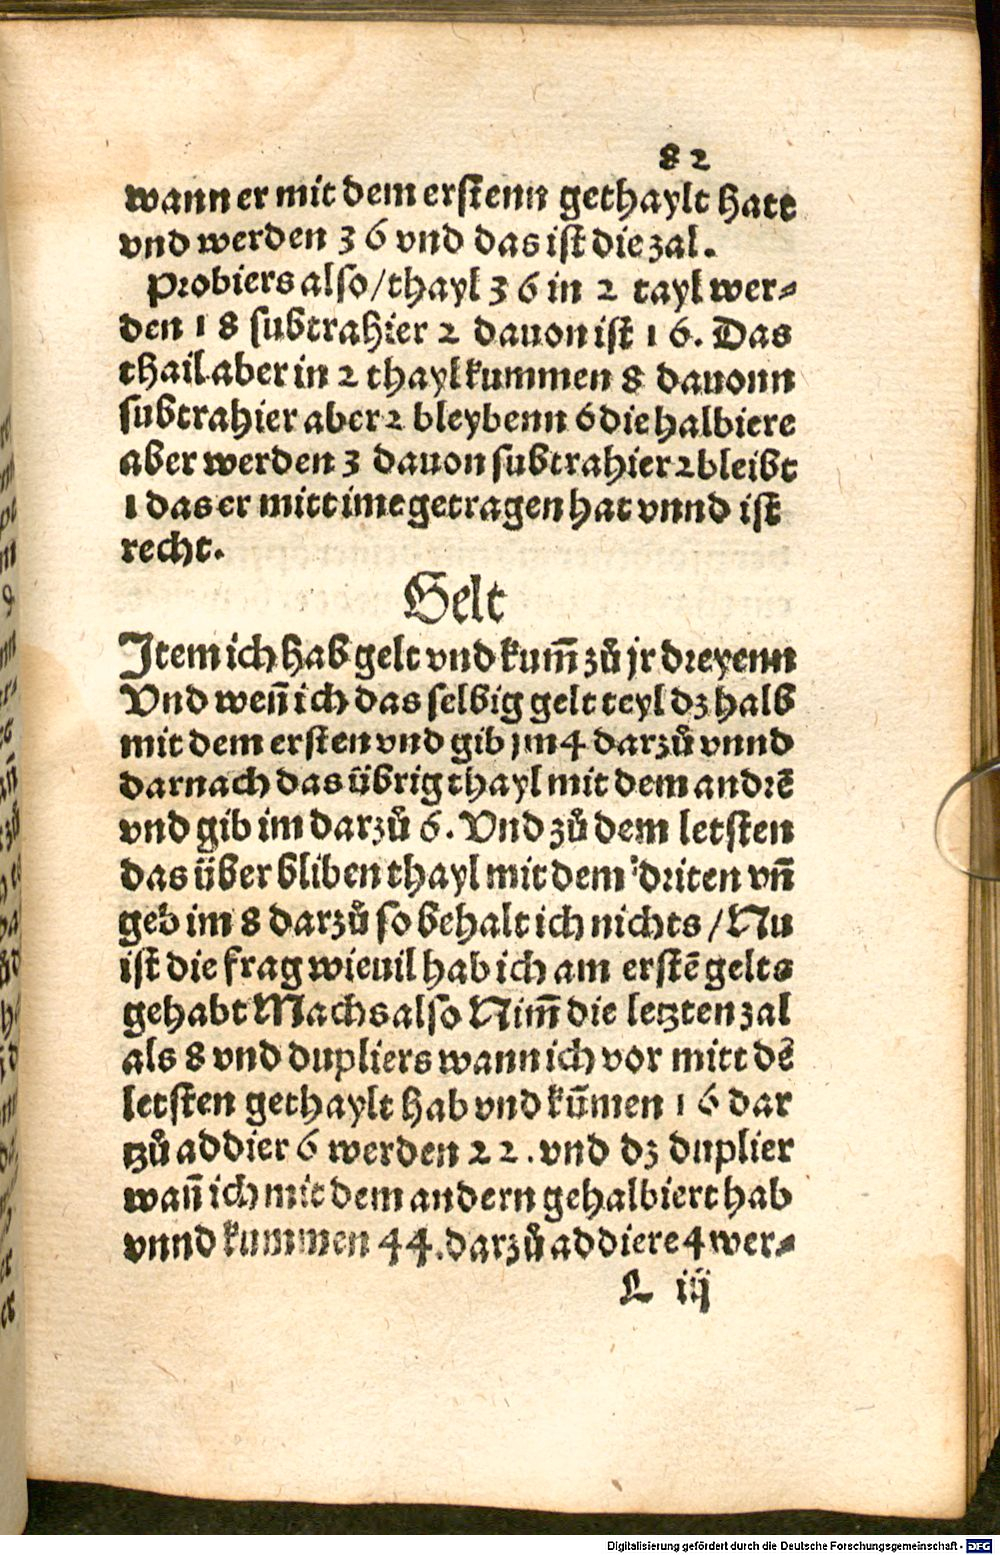 82
wann er mit dem erstenn gethaylt hatt
vnd werden 36 vnd das ist die zal.
Probiers also/thayl 36 in 2 tayl wer⸗
den 18 subtrahier 2 dauon ist 16. Das
thail aber in 2 thayl kummen 8 dauonn
subtrahier aber 2 bleybenn 6 die halbiere
aber werden 3 dauon subtrahier 2 bleibt
1 das er mitt ime getragen hat vnnd ist
recht.
Gelt
Item ich hab gelt vnd kum̄ zů jr dreyenn
Vnd wen̄ ich das selbig gelt teyl dz halb
mit dem ersten vnd gib jm 4 darzů vnnd
darnach das übrig thayl mit dem andrē
vnd gib im darzů 6. Vnd zů dem letsten
das über bliben thayl mit dem driten vn̄
geb im 8 darzů so behalt ich nichts/Nu
ist die frag wieuil hab ich am erstē gelts
gehabt Machs also Nim̄ die letzten zal
als 8 vnd dupliers wann ich vor mitt dē
letsten gethaylt hab vnd kūmen 16 dar
tzů addier 6 werden 22. vnd dz duplier
wan̄ ich mit dem andern gehalbiert hab
vnnd kummen 44. darzů addiere 4 wer⸗
L iij
Digitalisierung gefördert durch die Deutsche Forschungsgemeinschaft - DFG